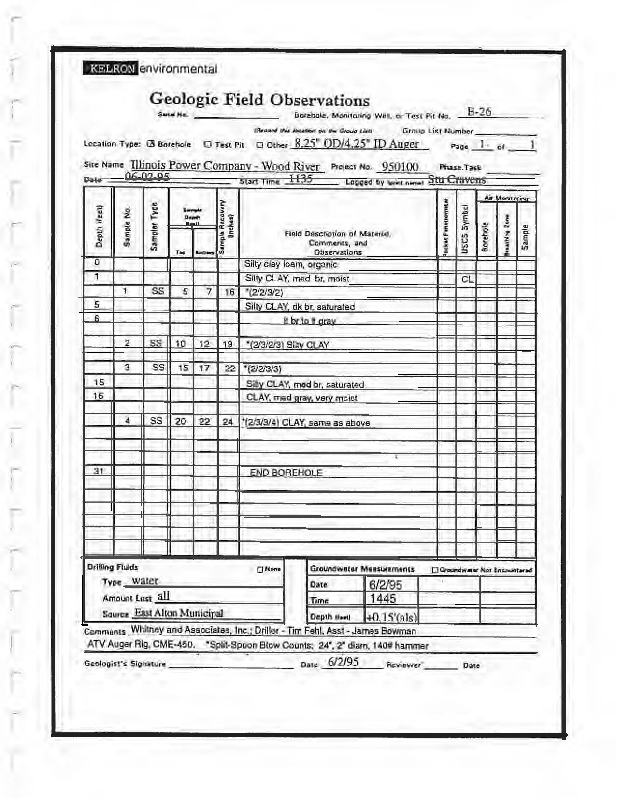 KELRON environmental
Geologic Field Observations
Serial No. Borehole, Monitoring Well, or Test Pit No. B-26
(Record this location on the Group List) Group List Number
Location Type: ☒ Borehole ☐ Test Pit ☐ Other 8.25" OD/4.25" ID Auger Page 1 of 1
Site Name Illinois Power Company - Wood River Project No. 950100 Phase.Task
Date 06-02-95 Start Time 1135 Logged by (print name) Stu Cravens
Depth (feet) Sample No. Sampler Type Sample Depth (feet) Top Bottom Sample Recovery (inches) Field Description of Material, Comments, and Observations Pocket Penetrometer USCS Symbol Air Monitoring Borehole Breathing Zone Sample
0 Silty clay loam, organic
1 Silty CLAY, med br, moist CL
1 SS 5 7 16 *(2/2/3/2)
5 Silty CLAY, dk br, saturated
6 lt br to lt gray
2 SS 10 12 19 *(2/3/2/3) Silty CLAY
3 SS 15 17 22 *(2/2/3/3)
15 Silty CLAY, med br, saturated
16 CLAY, med gray, very moist
4 SS 20 22 24 *(2/3/3/4) CLAY, same as above
31 END BOREHOLE
Drilling Fluids ☐ None
Type water
Amount Lost all
Source East Alton Municipal
Groundwater Measurements ☐ Groundwater Not Encountered
Date 6/2/95
Time 1445
Depth (feet) +0.15'(als)
Comments Whitney and Associates, Inc.; Driller - Tim Fehl, Asst - James Bowman
ATV Auger Rig, CME-450. *Split-Spoon Blow Counts; 24", 2" diam, 140# hammer
Geologist's Signature Date 6/2/95 Reviewer Date